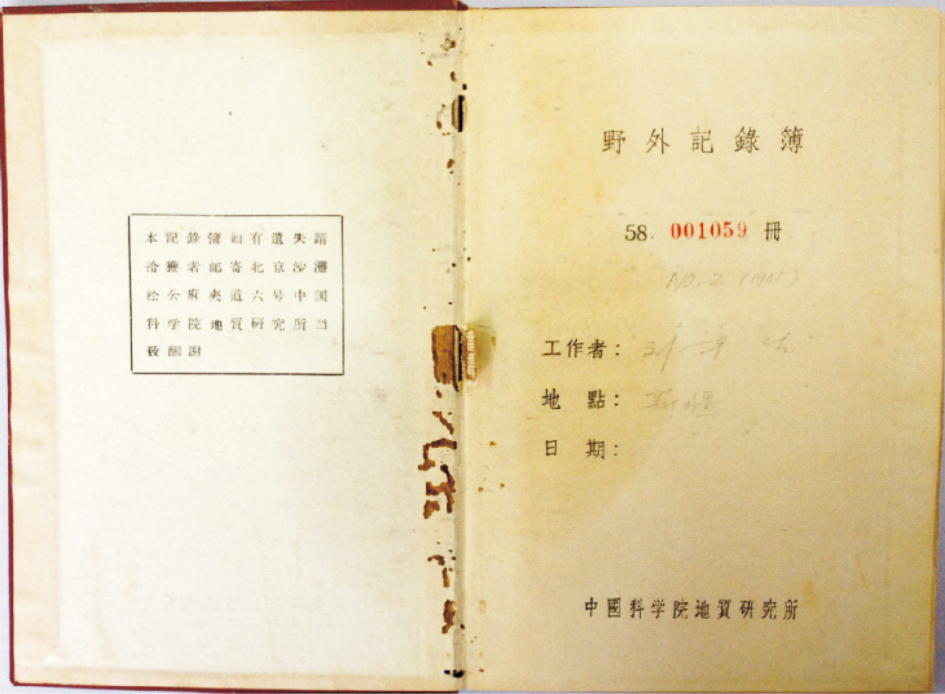 本記錄簿如有遺失請
拾獲者郵寄北京沙灘
松公府夾道六号中国
科学院地質研究所当
致酬謝
野外記錄簿
58. 001059 冊
NO. 2
工作者：
地點：
日期：
中國科学院地質研究所